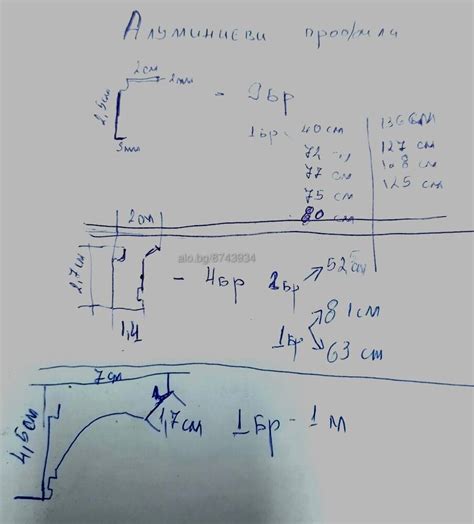 Алуминиеви профили
2см
2мм
2,5см
5мм
- 9бр
1бр - 40 см
72
77 см
75 см
80 см
136см
127 см
108 см
125 см
2см
2,7см
1,4
alo.bg/8743934
- 4бр
2бр
525см
1бр
81см
63 см
7см
4,5см
1,7см
1бр - 1 м